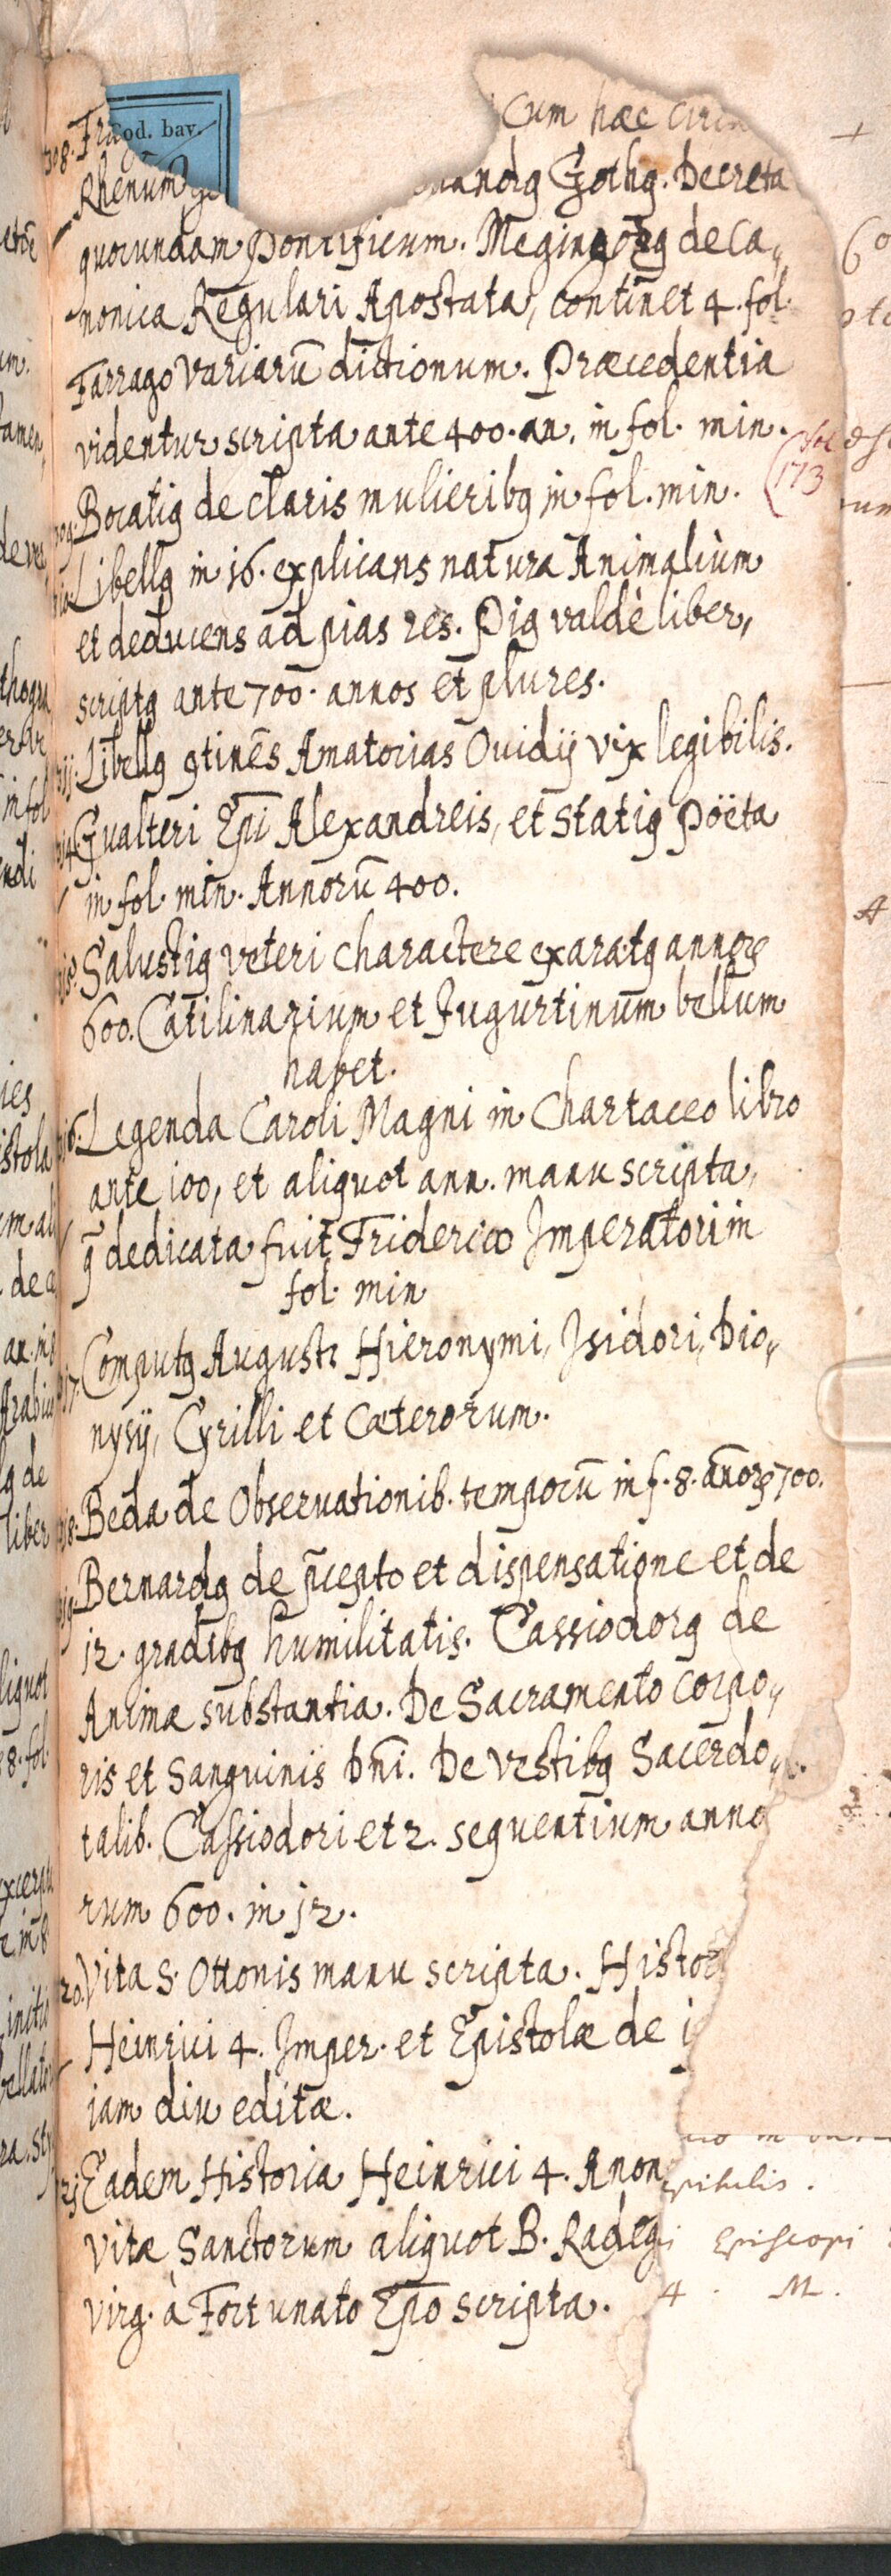 Cod. bav.
Cum hæc
308. Fra
Rhenum Gothꝯ. Decreta
quorundam Pontificum. Megingozꝯ de Ca„
nonica Regulari Apostata, continet 4. fol.
Farrago variarū dictionum. Præcedentia
videntur scripta ante 400. an. in fol. min.
173
Bocatiꝯ de claris mulieribꝯ in fol. min.
Libellꝯ in 16. explicans natura Animalium
et deducens ad pias res. Piꝯ valdè liber,
scriptꝯ ante 700. annos et plures.
Libellꝯ ꝯtinēs Amatorias Ouidij vix legibilis.
Gualteri Epī Alexandreis, et Statiꝯ Poëta
in fol. min. Annorū 400.
Salustiꝯ veteri charactere exaratꝯ annoꝝ
600. Catilinarium et Jugurtinum bellum
habet.
Legenda Caroli Magni in Chartaceo libro
ante 100, et aliquot ann. manu scripta,
q̄ dedicata fuit Friderico Imperatori in
fol. min
Computꝯ Augusti Hieronymi, Isidori, Dio„
nysij, Cyrilli et Cæterorum.
Beda de Obseruationib. temporū in f. 8. annoꝝ 700.
Bernardꝯ de p̄cepto et dispensatione et de
12. gradibꝯ humilitatis. Cassiodorꝯ de
Animæ substantia. De Sacramento corpo„
ris et Sanguinis Dn̄i. De vestibꝯ Sacerdo„
talib. Cassiodori et 2. sequentium anno
rum 600. in 12.
20. Vita S. Ottonis manu scripta. Histor
Heinrici 4. Imper. et Epistolæ de
iam diu editæ.
21 Eadem Historia Heinrici 4. Anon
Vitæ Sanctorum aliquot B. Radeg
Episcopi
virg. à Fortunato Ep̄o scripta.
4. M.